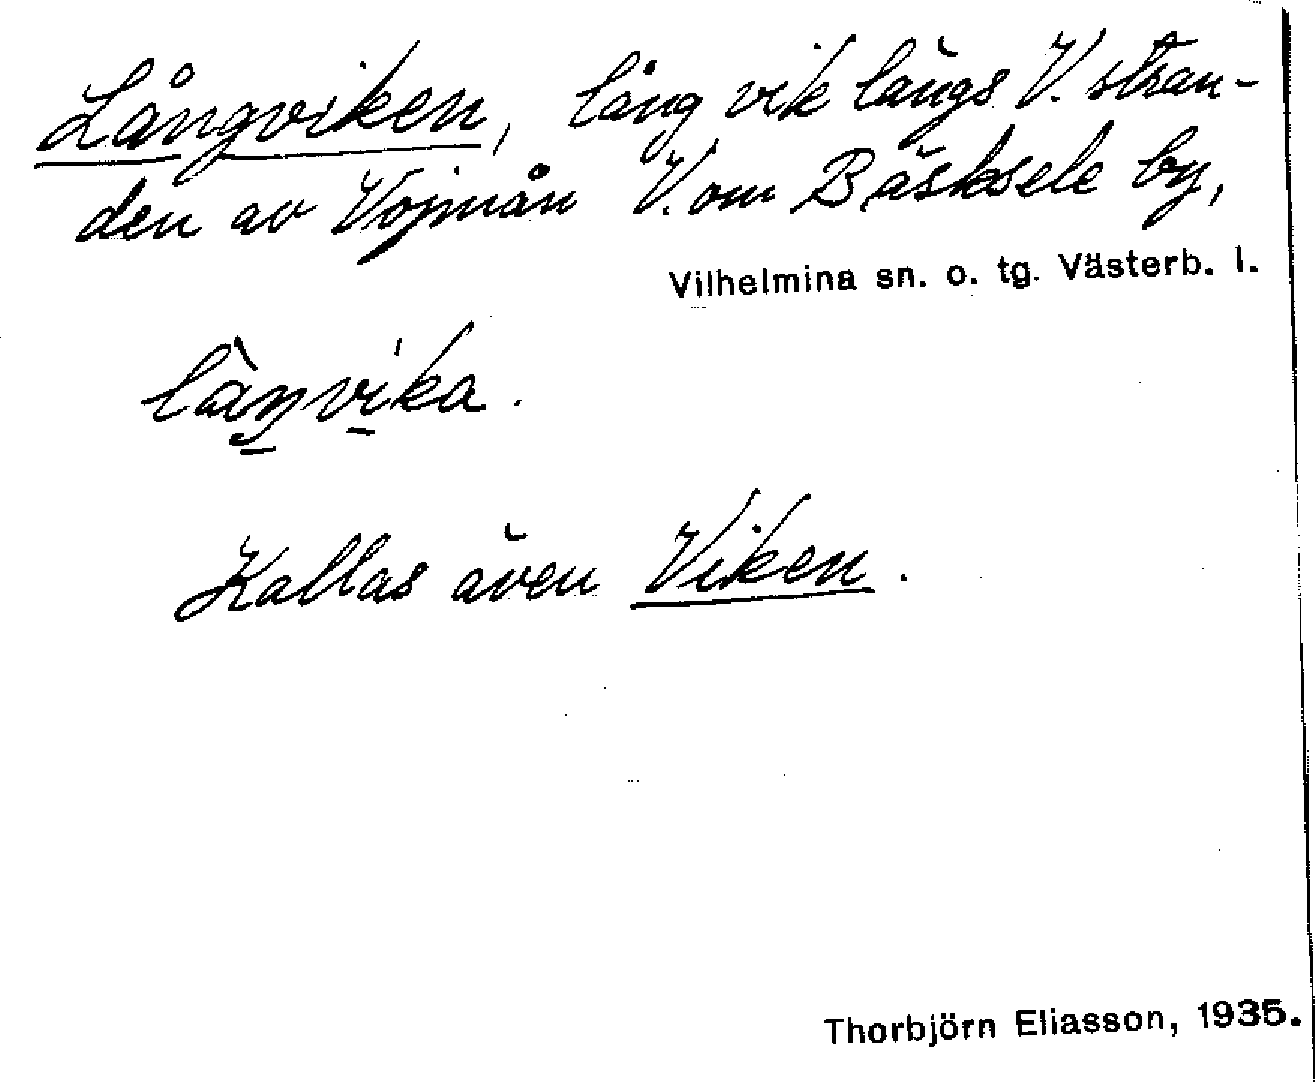 Långviken, lång vik längs V. stran-
den av Vojmån V. om Bäsksele by,
Vilhelmina sn. o. tg. Västerb. l.
làŋvika.
Kallas även Viken.
Thorbjörn Eliasson, 1935.